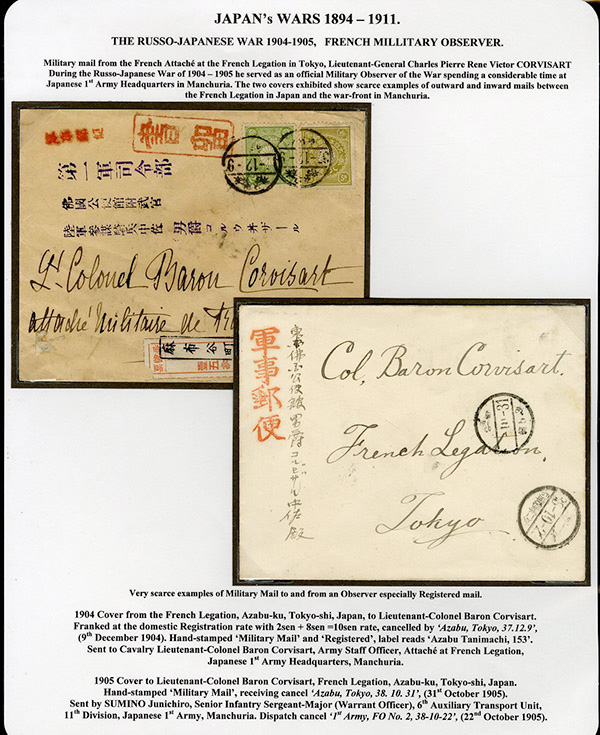 JAPAN's WARS 1894 – 1911.
THE RUSSO-JAPANESE WAR 1904-1905, FRENCH MILLITARY OBSERVER.
Military mail from the French Attaché at the French Legation in Tokyo, Lieutenant-General Charles Pierre Rene Victor CORVISART
During the Russo-Japanese War of 1904 – 1905 he served as an official Military Observer of the War spending a considerable time at
Japanese 1st Army Headquarters in Manchuria. The two covers exhibited show scarce examples of outward and inward mails between
the French Legation in Japan and the war-front in Manchuria.
書留
第一軍司令部
佛國公使館附武官
陸軍參謀騎兵中佐 男爵 コルウ井ザール
Lt Colonel Baron Corvisart
attaché Militaire de
麻布谷町
軍事郵便
Col, Baron Corvisart.
French Legation,
Tokyo
Very scarce examples of Military Mail to and from an Observer especially Registered mail.
1904 Cover from the French Legation, Azabu-ku, Tokyo-shi, Japan, to Lieutenant-Colonel Baron Corvisart.
Franked at the domestic Registration rate with 2sen + 8sen =10sen rate, cancelled by 'Azabu, Tokyo, 37.12.9',
(9th December 1904). Hand-stamped 'Military Mail' and 'Registered', label reads 'Azabu Tanimachi, 153'.
Sent to Cavalry Lieutenant-Colonel Baron Corvisart, Army Staff Officer, Attaché at French Legation,
Japanese 1st Army Headquarters, Manchuria.
1905 Cover to Lieutenant-Colonel Baron Corvisart, French Legation, Azabu-ku, Tokyo-shi, Japan.
Hand-stamped 'Military Mail', receiving cancel 'Azabu, Tokyo, 38. 10. 31', (31st October 1905).
Sent by SUMINO Junichiro, Senior Infantry Sergeant-Major (Warrant Officer), 6th Auxiliary Transport Unit,
11th Division, Japanese 1st Army, Manchuria. Dispatch cancel '1st Army, FO No. 2, 38-10-22', (22nd October 1905).